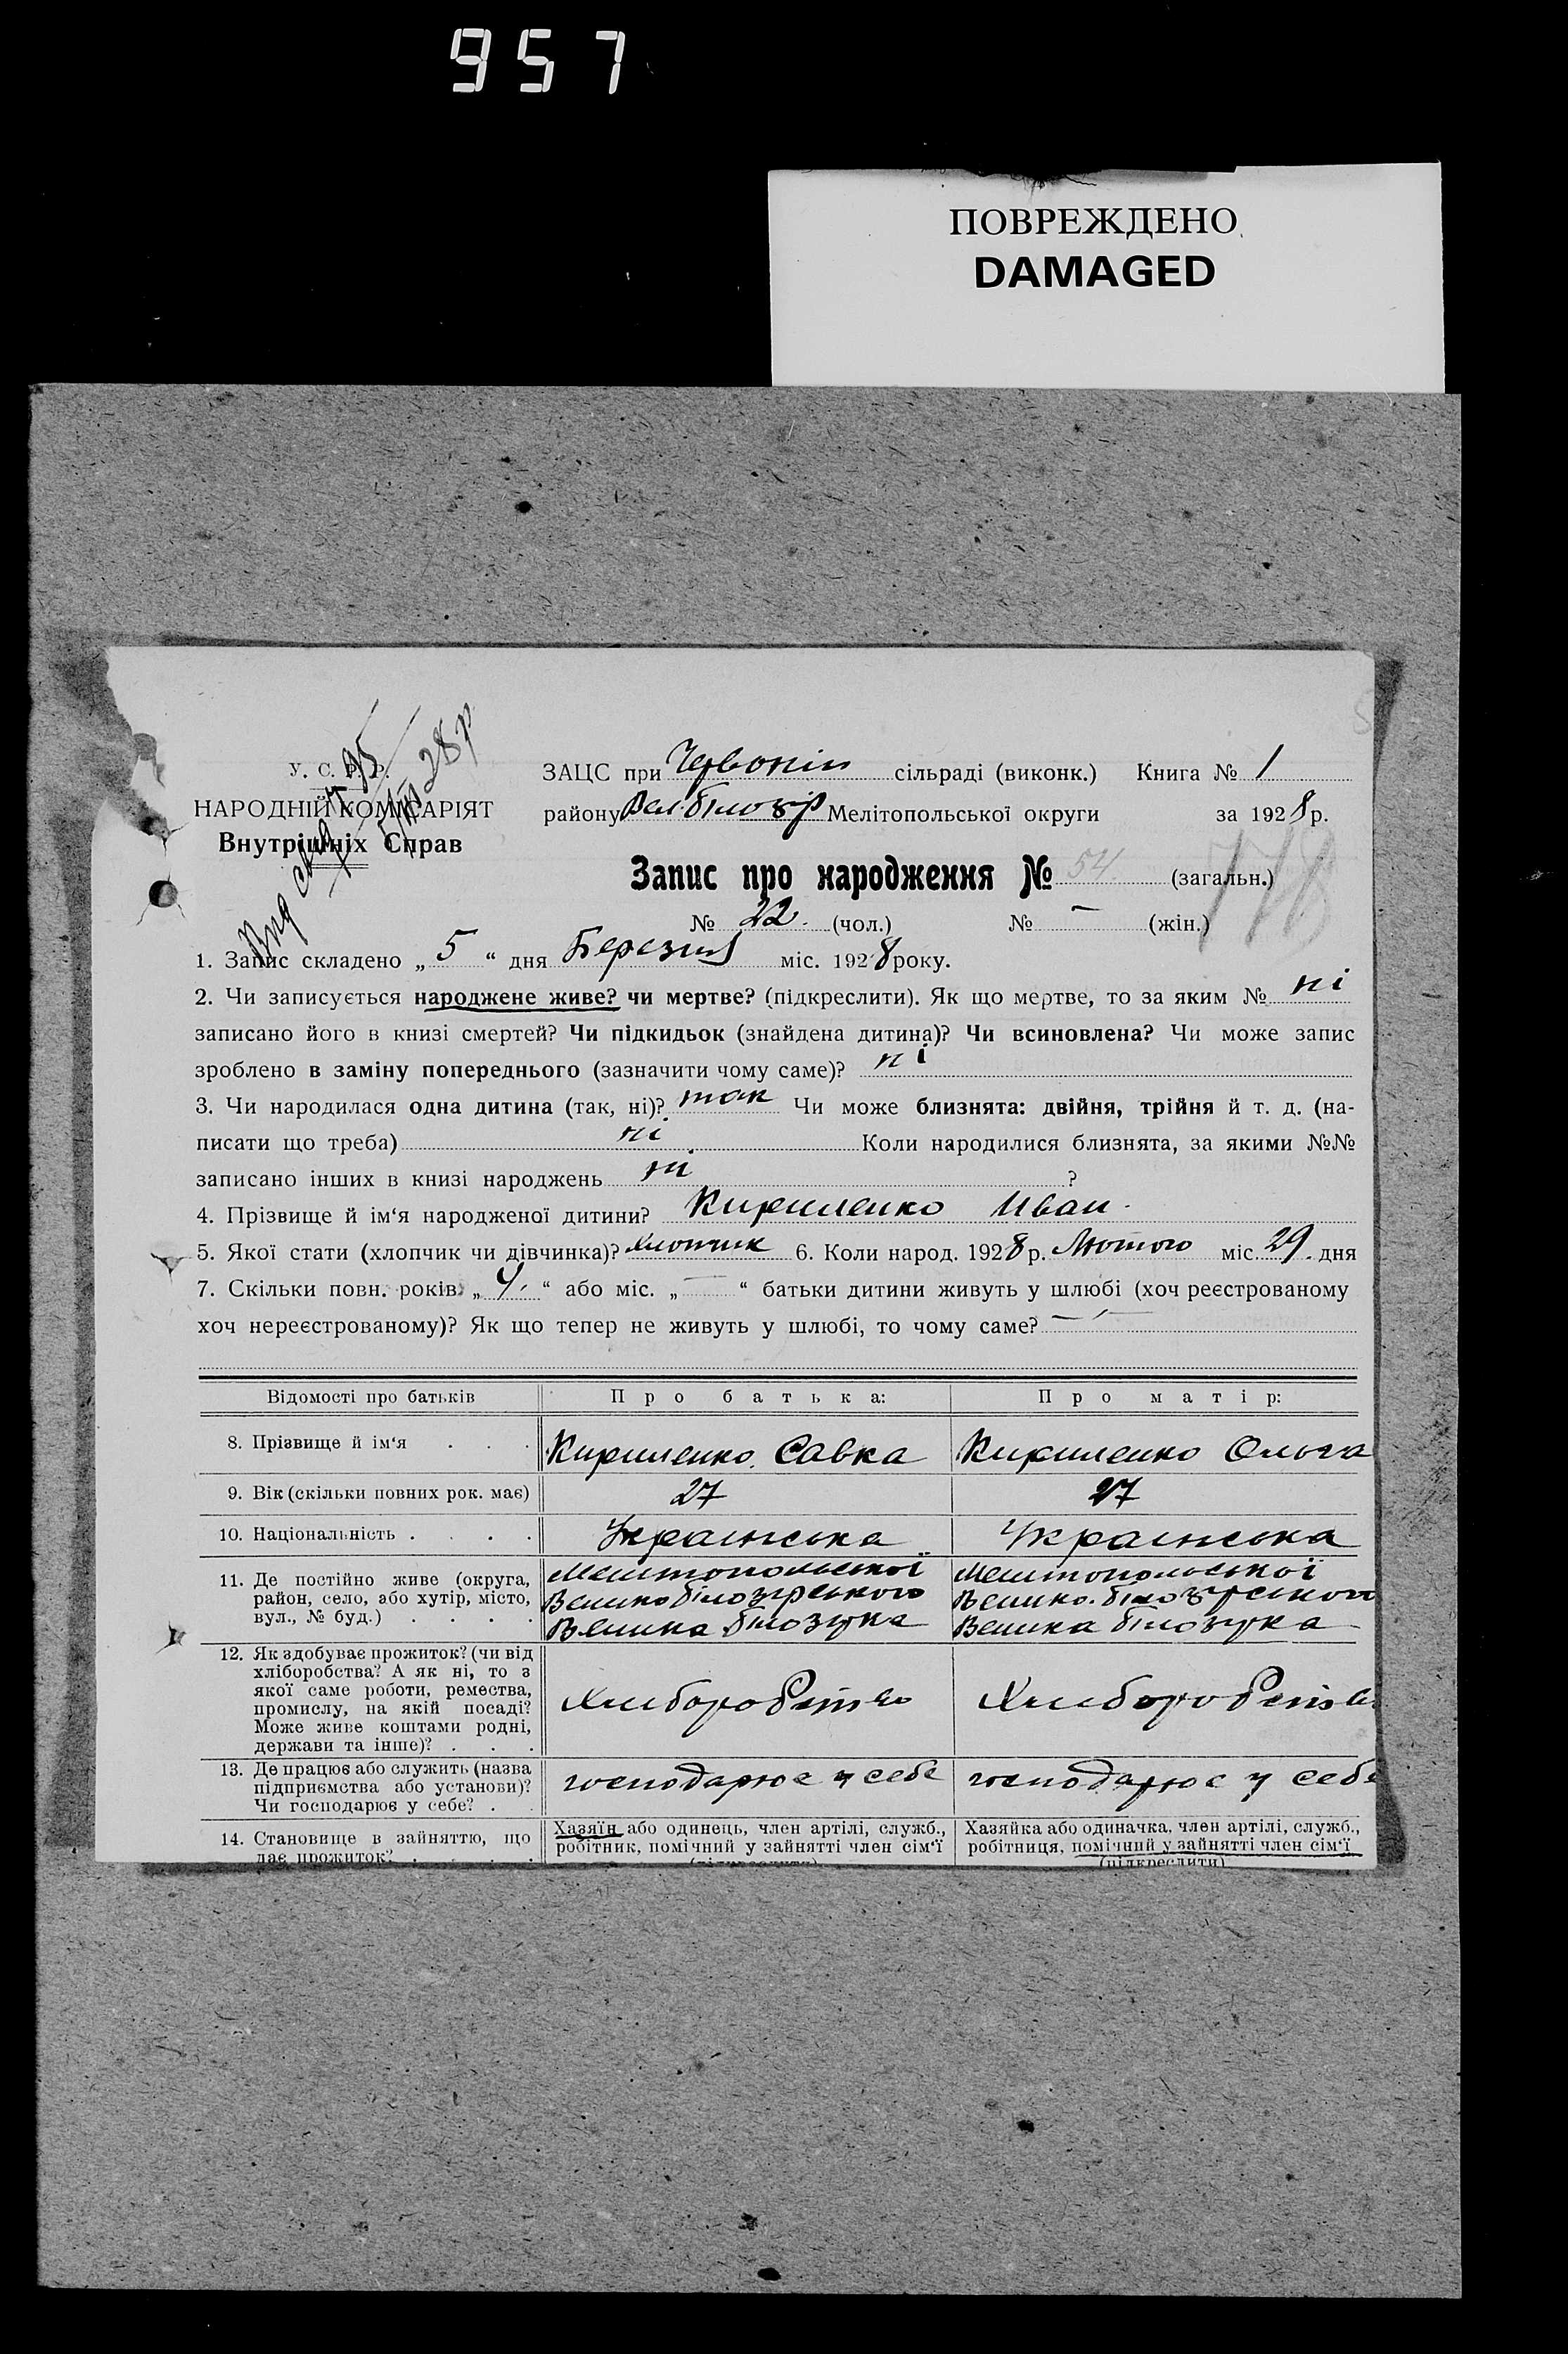 957
ПОВРЕЖДЕНО
DAMAGED
У. С. Р. Р.
НАРОДНІЙ КОМІСАРІЯТ
Внутрішніх Справ
28 р
ЗАЦС при Червоній сільраді (виконк.) Книга № 1
району Вел. білозір Мелітопольської округи за 1928 р.
Запис про народження № 54 (загальн.)
178
№ 22. (чол.) № — (жін.)
1. Запис складено „ 5 “ дня Березня міс. 1928 року.
2. Чи записується народжене живе? чи мертве? (підкреслити). Як що мертве, то за яким № ні
записано його в книзі смертей? Чи підкидьок (знайдена дитина)? Чи всиновлена? Чи може запис
зроблено в заміну попереднього (зазначити чому саме)? ні
3. Чи народилася одна дитина (так, ні)? так Чи може близнята: двійня, трійня й т. д. (на-
писати що треба) ні Коли народилися близнята, за якими №№
записано інших в книзі народжень ні ?
4. Прізвище й ім‘я народженої дитини? Кириленко Иван.
5. Якої стати (хлопчик чи дівчинка)? хлопчик 6. Коли народ. 1928 р. Лютого міс. 29. дня
7. Скільки повн. років „ 4. “ або міс. „ — “ батьки дитини живуть у шлюбі (хоч реєстрованому
хоч нереєстрованому)? Як що тепер не живуть у шлюбі, то чому саме? —
Відомості про батьків Про батька: Про матір:
8. Прізвище й ім‘я . . . Кириленко Савка Кириленко Ольга
9. Вік (скільки повних рок. має) 27 27
10. Національність . . . . Українська Українська
11. Де постійно живе (округа, район, село, або хутір, місто, вул., № буд.) . . . .
Мелитопольської
Велико білозірського
Велика білозірка
Мелитопольської
Велико. білозірського
Велика білозірка
12. Як здобуває прожиток? (чи від
хліборобства? А як ні, то з
якої саме роботи, ремества,
промислу, на якій посаді?
Може живе коштами родні,
держави та інше)? . . .
Хліборобство Хліборобство
13. Де працює або служить (назва
підприємства або установи)?
Чи господарює у себе? . .
господарює у себе господарює у себе
14. Становище в зайняттю, що
дає прожиток? . . . .
Хазяїн або одинець, член артілі, служб.,
робітник, помічний у зайнятті член сім‘ї
(підкреслити)
Хазяйка або одиначка, член артілі, служб.,
робітниця, помічний у зайнятті член сім‘ї
(підкреслити)